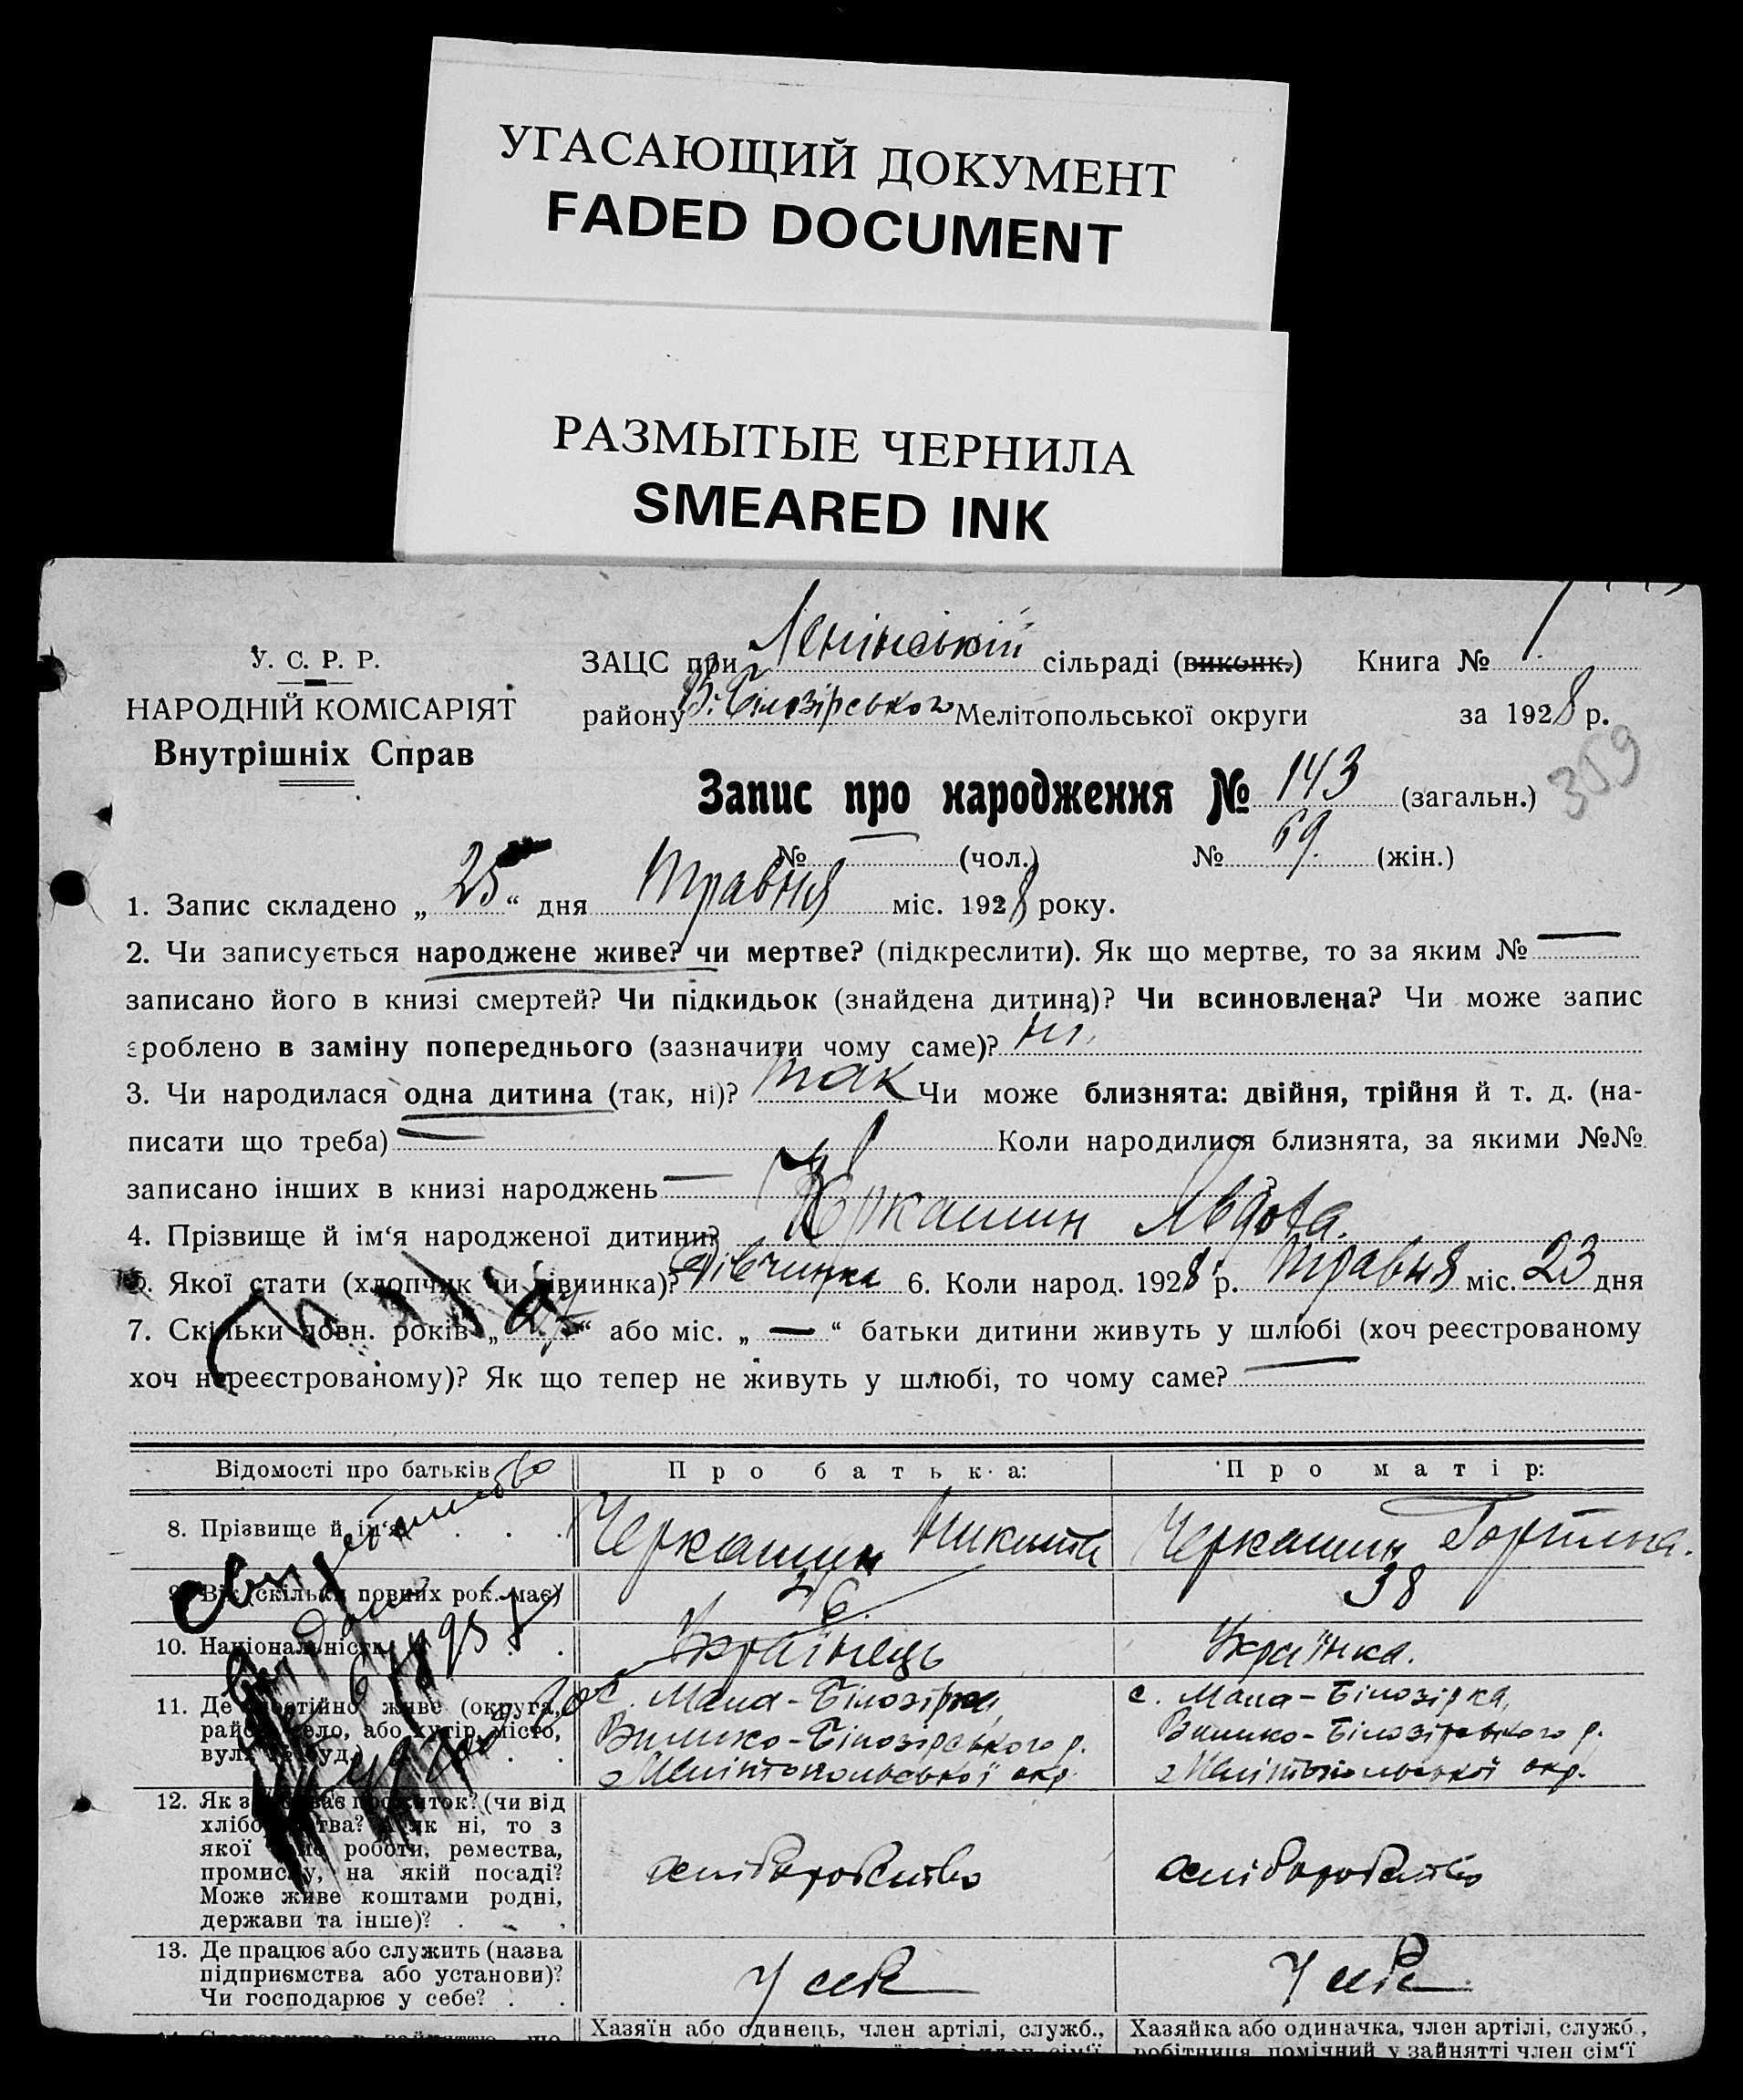 УГАСАЮЩИЙ ДОКУМЕНТ
FADED DOCUMENT
РАЗМЫТЫЕ ЧЕРНИЛА
SMEARED INK
У. С. Р. Р.
НАРОДНІЙ КОМІСАРІЯТ
Внутрішніх Справ
ЗАЦС при Ленінській сільраді (виконк.) Книга № 1
району В. Білозірського Мелітопольської округи за 1928 р.
359
Запис про народження № 143 (загальн.)
№ — (чол.) № 69. (жін.)
1. Запис складено „25“ дня Травня міс. 1928 року.
2. Чи записується народжене живе? чи мертве? (підкреслити). Як що мертве, то за яким № —
записано його в книзі смертей? Чи підкидьок (знайдена дитина)? Чи всиновлена? Чи може запис
зроблено в заміну попереднього (зазначити чому саме)? ні.
3. Чи народилася одна дитина (так, ні)? так Чи може близнята: двійня, трійня й т. д. (на-
писати що треба) — Коли народилися близнята, за якими №№
записано інших в книзі народжень —
4. Прізвище й ім‘я народженої дитини? Черкашин Явдоха.
5. Якої стати (хлопчик чи дівчинка)? Дівчинка 6. Коли народ. 1928 р. Травня міс. 23 дня
7. Скільки повн. років „ “ або міс. „ — “ батьки дитини живуть у шлюбі (хоч реєстрованому
хоч нереєстрованому)? Як що тепер не живуть у шлюбі, то чому саме? —
Відомості про батьків Про батька: Про матір:
8. Прізвище й ім‘я . . . Черкашин Микита Черкашин Горпина.
9. Вік (скільки повних рок. має) 38
10. Національність . . Українець Українка.
11. Де постійно живе (округа, с. Мала-Білозірка, с. Мала-Білозірка,
район, село, або хутір, місто, Велико-Білозірського р. Велико-Білозірського р.
вул. № буд.) . . Мелітопольської окр. Мелітопольської окр.
12. Як заробляє прожиток? (чи від
хліборобства? А як ні, то з
якої роботи, ремества,
промислу, на якій посаді? хліборобство хліборобство
Може живе коштами родні,
держави та інше)? .
13. Де працює або служить (назва
підприємства або установи)? У себе У себе
Чи господарює у себе? .
Хазяїн або одинець, член артілі, служб., Хазяйка або одиначка, член артілі, служб.,
робітниця, помічний у зайнятті член сім‘ї